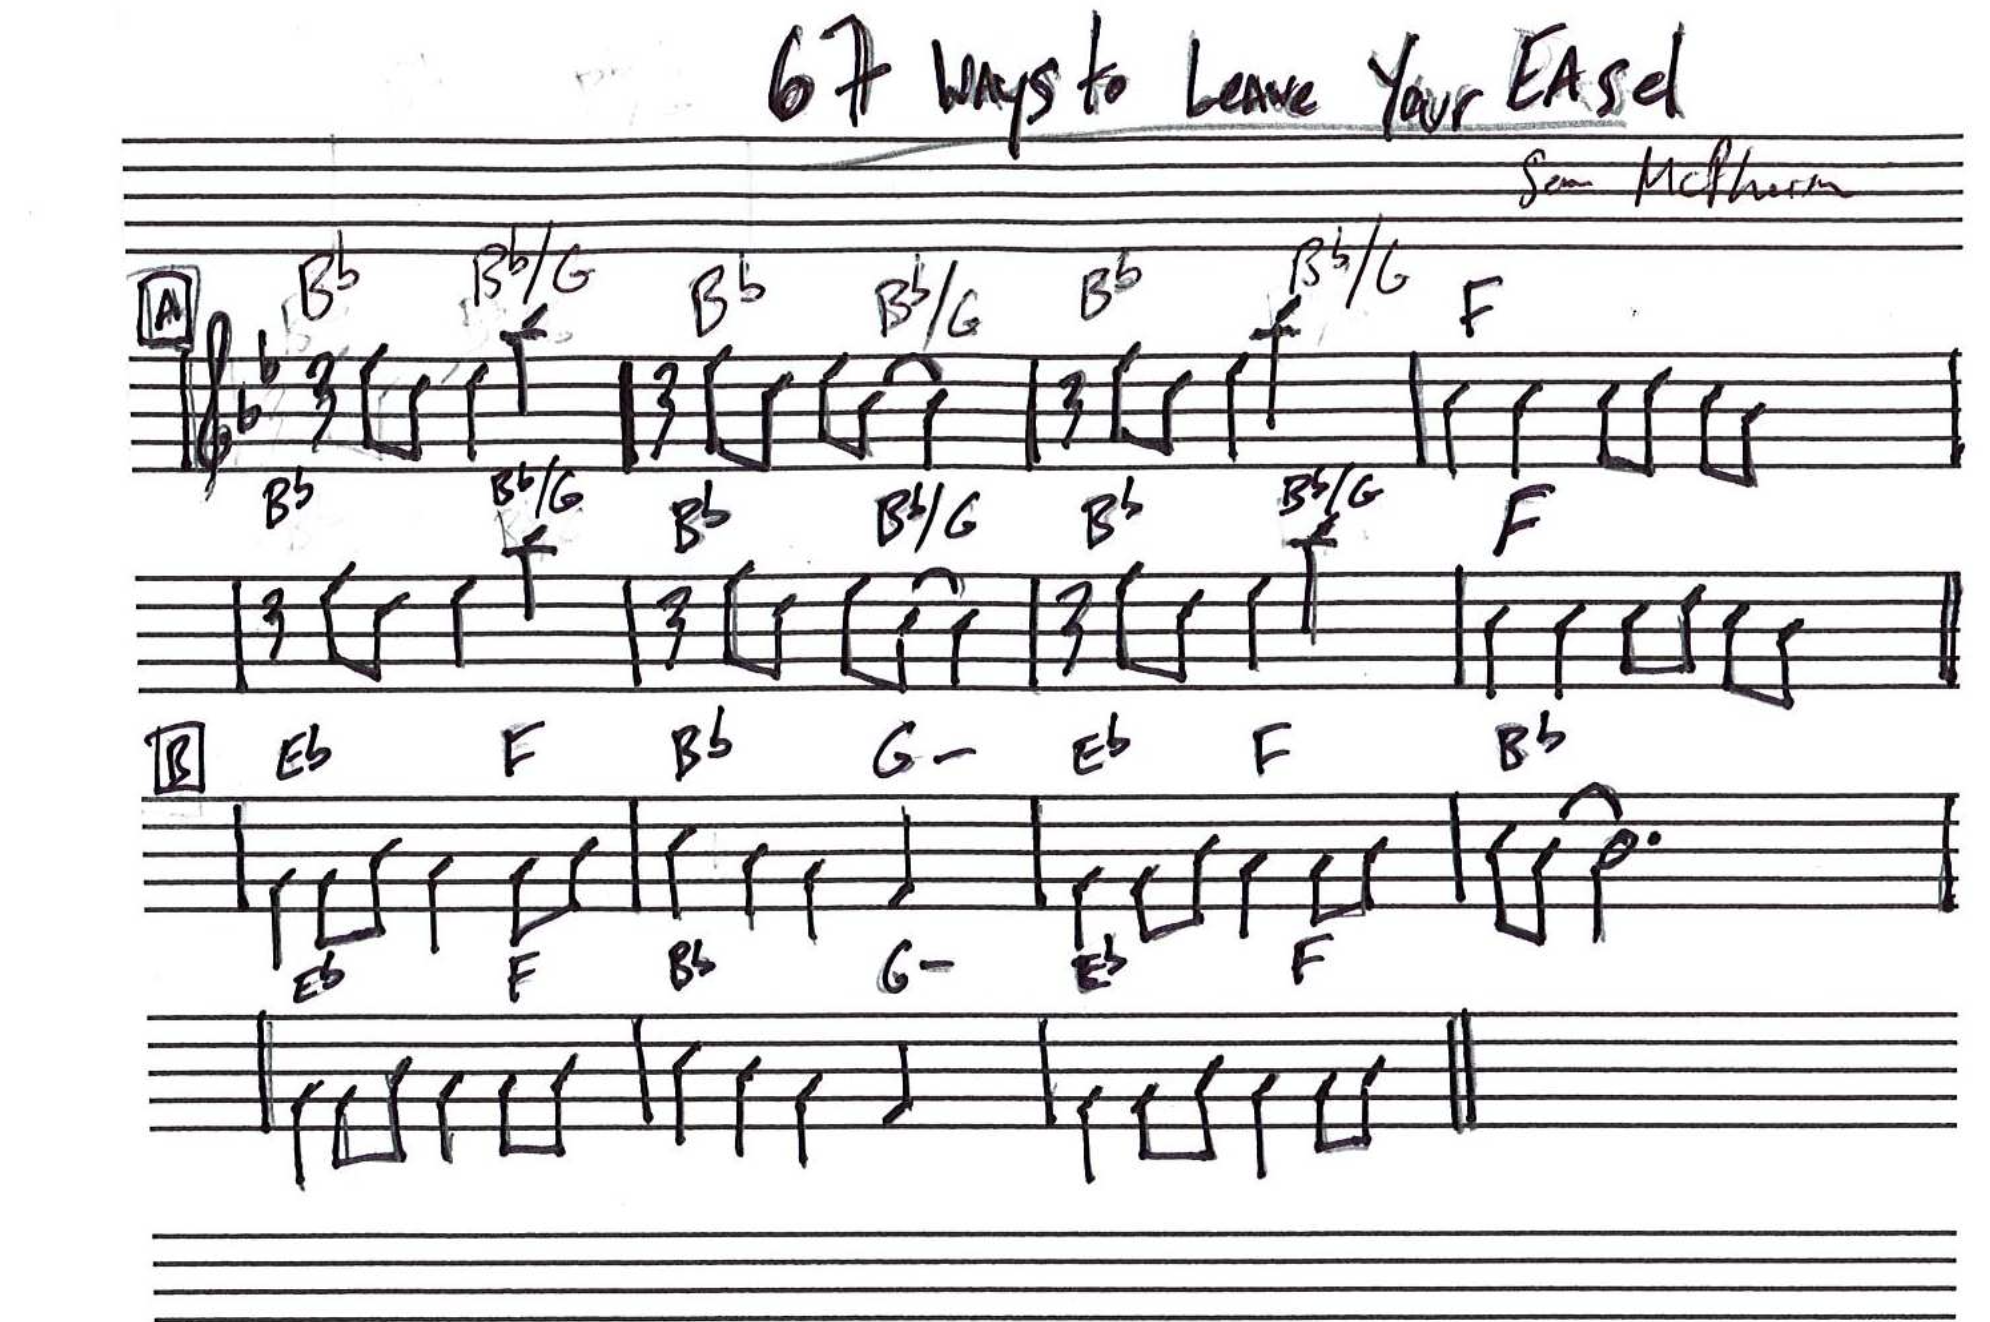 67 Ways to Leave Your EASel
Sean McPherson
A
Bb Bb/G Bb Bb/G Bb Bb/G F
Bb Bb/G Bb Bb/G Bb Bb/G F
B
Eb F Bb G- Eb F Bb
Eb F Bb G- Eb F